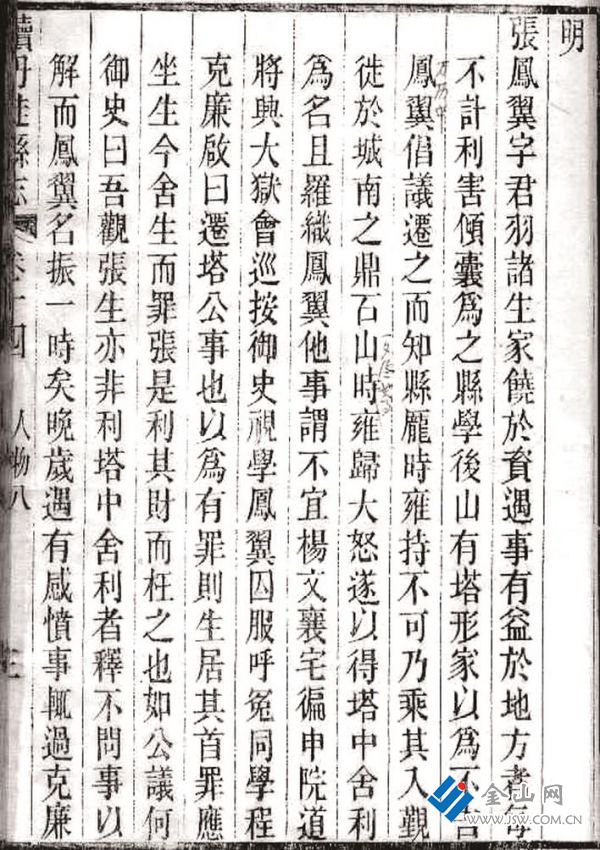 明
張鳳翼字君羽諸生家饒於貲遇事有益於地方者每
不計利害傾囊爲之縣學後山有塔形家以爲不吉
鳳翼倡議遷之而知縣龐時雍持不可乃乘其入覲
徙於城南之鼎石山時雍歸大怒遂以得塔中舍利
爲名且羅織鳳翼他事謂不宜楊文襄宅徧申院道
將興大獄會巡按御史視學鳳翼囚服呼冤同學程
克廉啟曰遷塔公事也以爲有罪則生居其首罪應
坐生今舍生而罪張是利其財而枉之也如公議何
御史曰吾觀張生亦非利塔中舍利者釋不問事以
解而鳳翼名振一時矣晚歲遇有感憤事輒過克廉
續丹徒縣志 卷十四 人物八
金山网
WWW.JSW.COM.CN